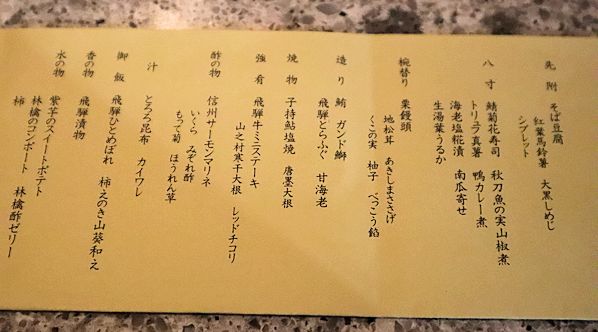 先附 そば豆腐
紅葉馬鈴薯 大黒しめじ
シブレット
八寸 鯖菊花寿司 秋刀魚の実山椒煮
トリュフ真薯 鴨カレー煮
海老塩糀漬 南瓜寄せ
生湯葉うるか
椀替り 栗饅頭
地松茸 あきしまささげ
くこの実 柚子 べっこう餡
造り 鮪 ガンド鰤
飛騨とらふぐ 甘海老
焼物 子持鮎塩焼 唐墨大根
強肴 飛騨牛ミニステーキ
山之村寒干大根 レッドチコリ
酢の物 信州サーモンマリネ
いくら みぞれ酢
もって菊 ほうれん草
汁 とろろ昆布 カイワレ
御飯 飛騨ひとめぼれ 柿えのき山葵和え
香の物 飛騨漬物
水の物 紫芋のスイートポテト
林檎のコンポート 林檎酢ゼリー
柿